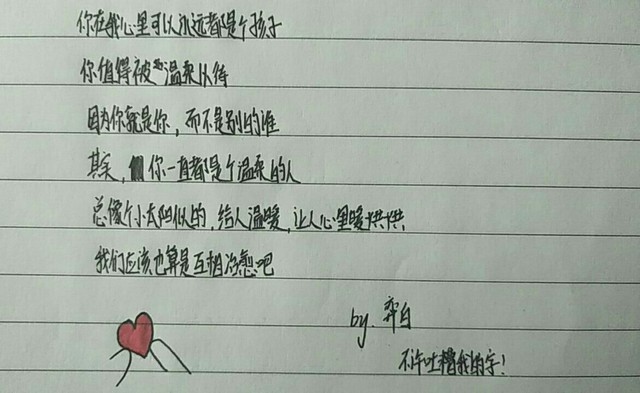 你在我心里可以永远都是个孩子
你值得被温柔以待
因为你就是你，而不是别的谁
其实，你一直都是个温柔的人
总像个小太阳似的，给人温暖，让人心里暖烘烘
我们应该也算是互相治愈吧
by. 弈白
不许吐槽我的字！